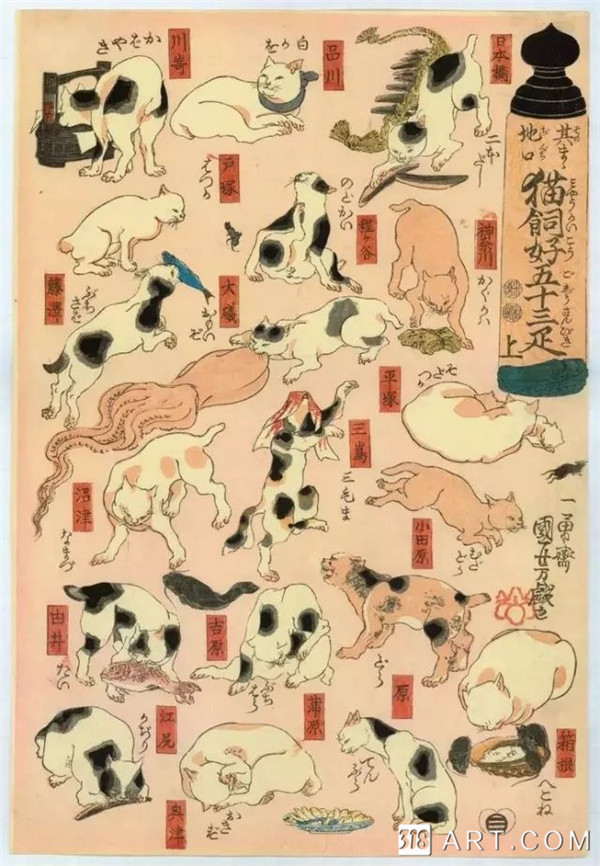 其まゝ
地口
猫飼好五十三疋
上
日本橋
二本だし
品川
白かを
川嵜
かばやき
神奈川
かぐかは
程ヶ谷
のどかい
戸塚
はつか
藤澤
ぶちさば
大磯
おもいぞ
平塚
そだつか
小田原
むだどら
三嶌
三毛ま
沼津
なまづ
箱根
へこね
原
どら
吉原
ぶちはら
由井
たい
蒲原
てんぷら
江尻
かぢり
奥津
おきず
一勇齋
國芳
318 ART.COM